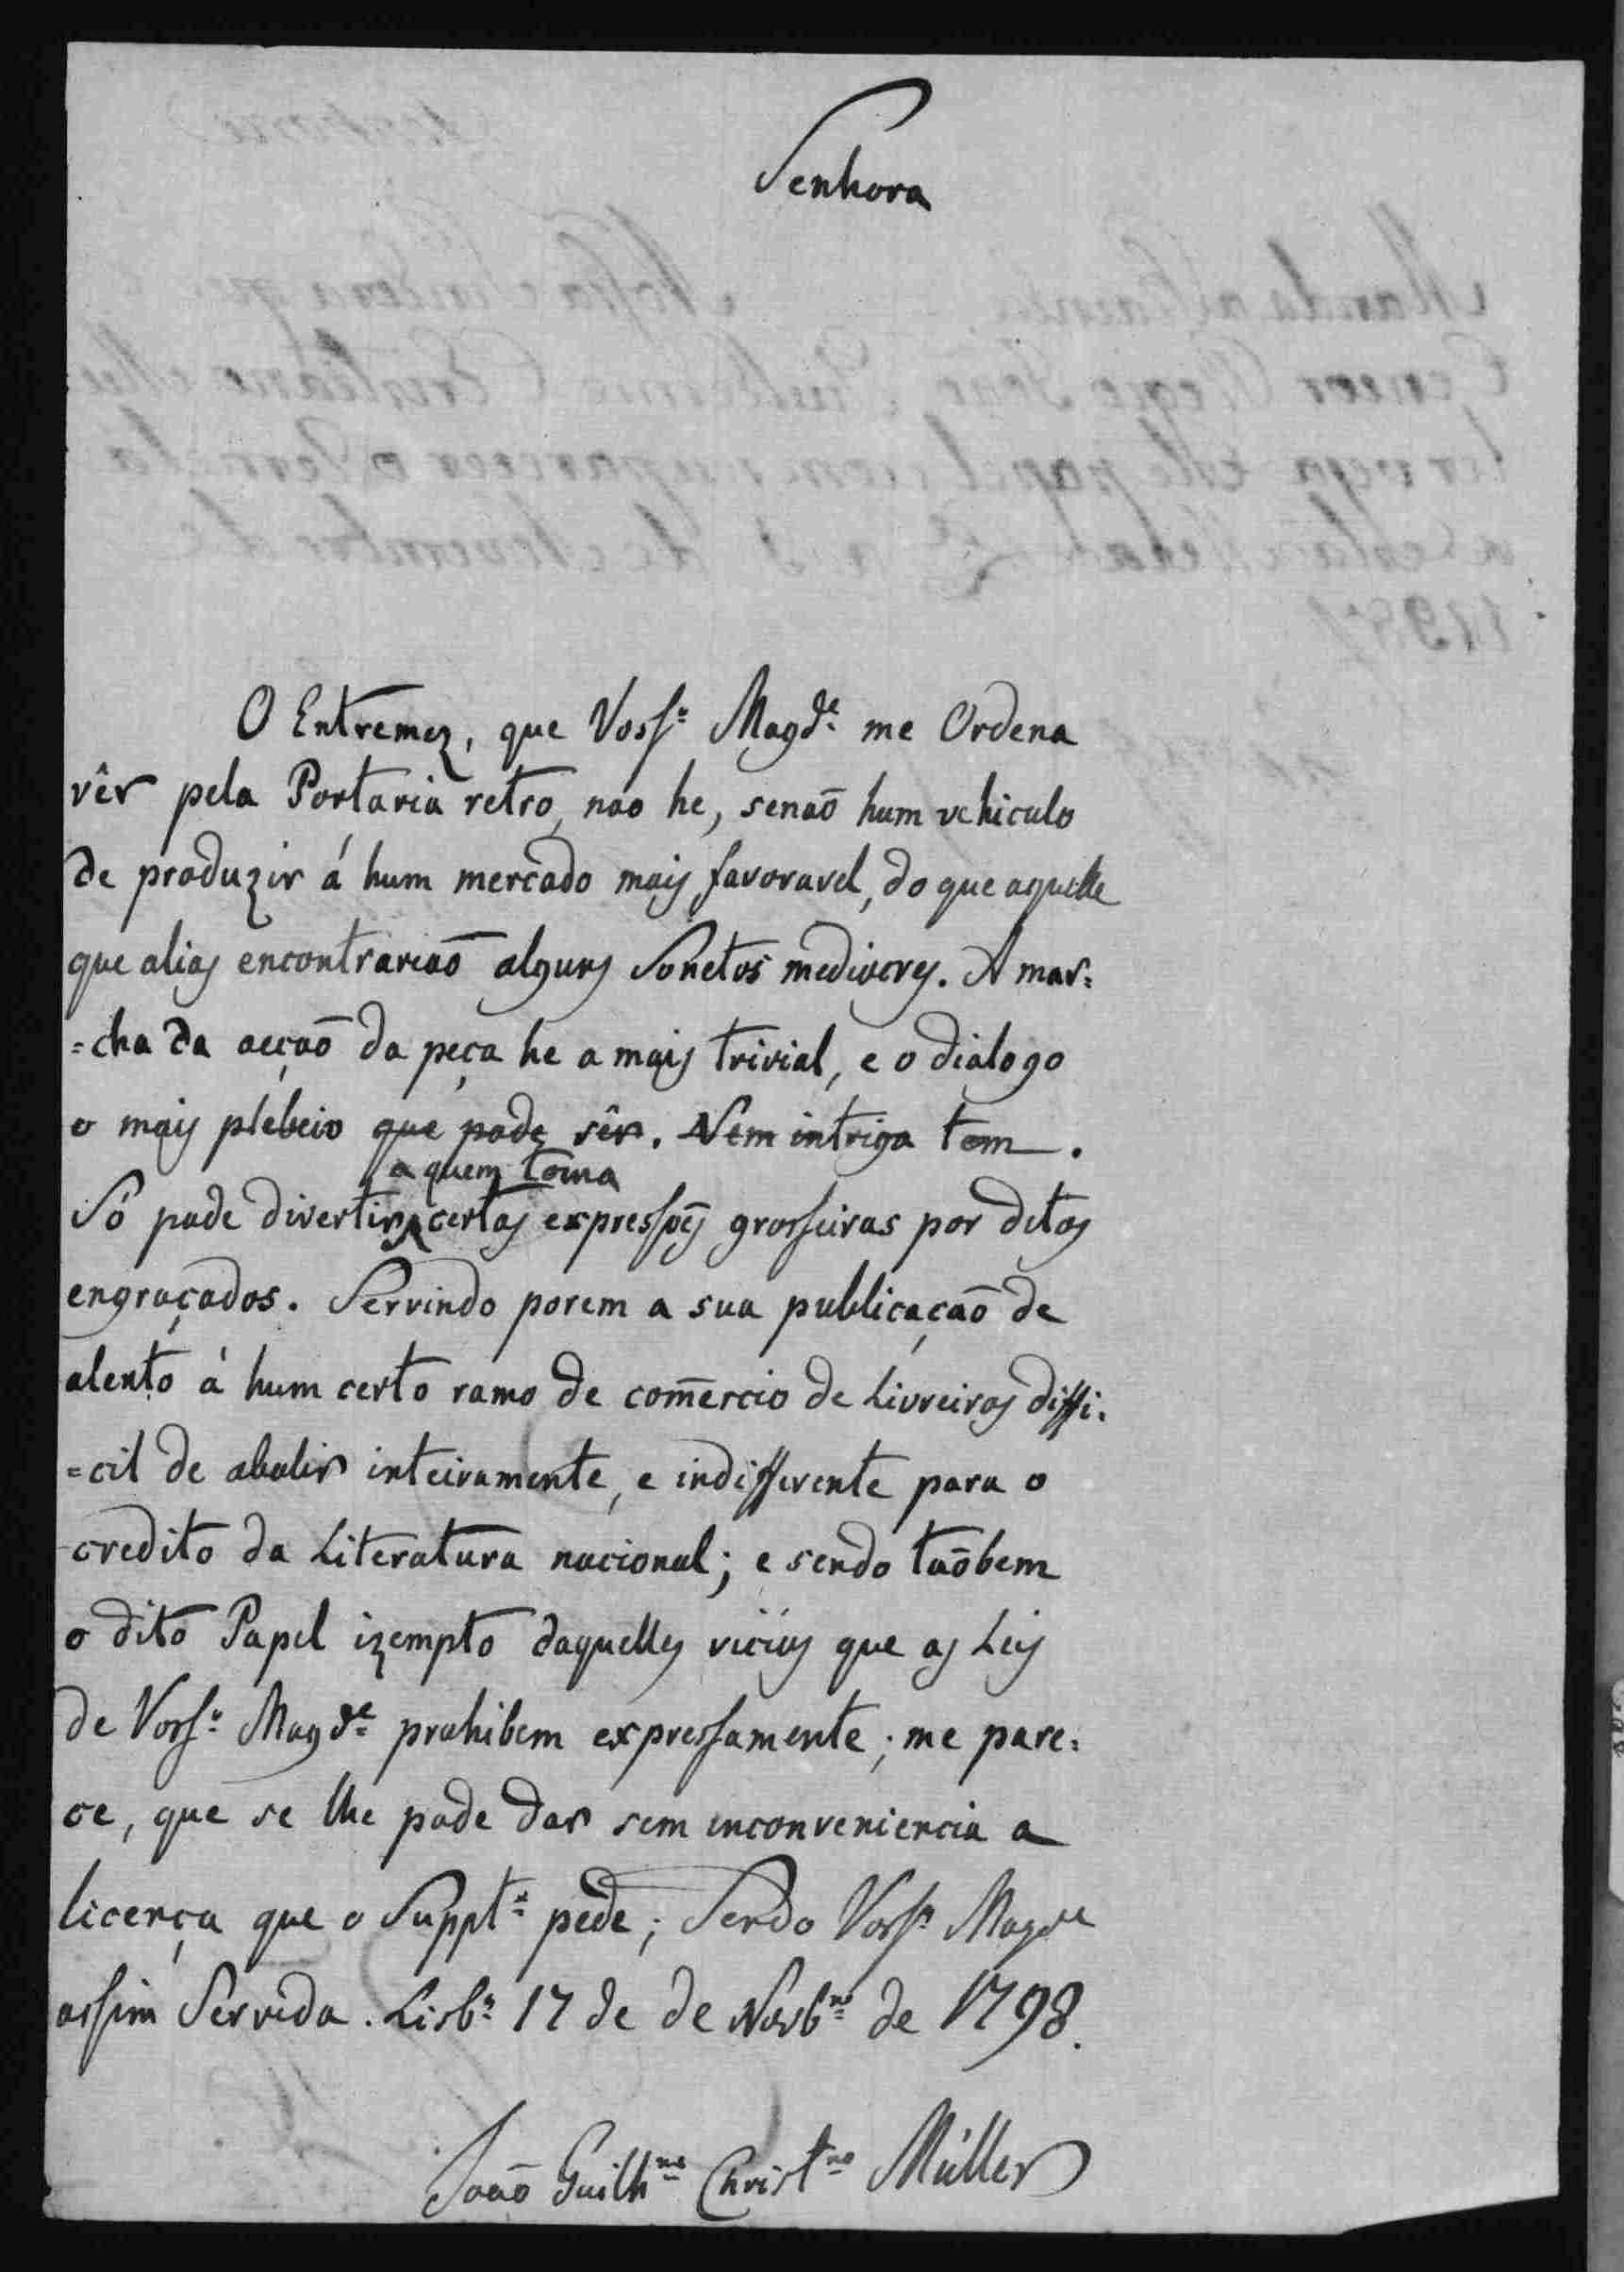 Senhora
O Entremez, que Voss.ª Magd.e me Ordena
vêr pela Portaria retro, nao he, senaõ hum vehiculo
de produzir á hum mercado mais favoravel, do que aquelle
que alias encontrariaõ alguns Sonetos mediocres. A mar=
=cha da acçaõ da peça he a mais trivial, e o dialogo
o mais plebeio que pode sêr. Nem intriga tem.
a quem toma
Só pode divertir certas expressoẽs grosseiras por ditos
engraçados. Servindo porem a sua publicaçaõ de
alento á hum certo ramo de com̃ercio de Livreiros diffi=
=cil de abolir inteiramente, e indifferente para o
credito da Literatura nacional; e sendo taõbem
o dito Papel izempto daquelles vicios que as Leis
de Voss.ª Magd.e prohibem expressamente; me pare=
ce, que se lhe pode dar sem inconveniencia a
licença que o Suppl.e pede; Sendo Voss.ª Magde
assim Servida. Lisb.ª 17 de de Novb.ro de 1798.
Joaõ Guilh.me Christ.no Müller